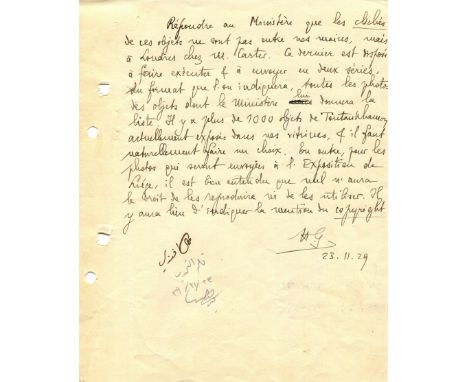 Répondre au Ministère que les clichés
de ces objets ne sont pas entre nos mains, mais
à Londres chez M. Carter. Ce dernier est disposé
à faire exécuter & à envoyer en deux séries,
du format que l'on indiquera, toutes les photos
des objets dont le Ministère lui donnera la
liste. Il y a plus de 1000 objets de Toutankhamon
actuellement exposés dans nos vitrines, & il faut
naturellement faire un choix. En outre, pour les
photos qui seront envoyées à l'Exposition de
Liège, il est bien entendu que nul n'aura
le droit de les reproduire ni de les utiliser. Il
y aura lieu d'indiquer la mention du copyright
HG
23.11.29